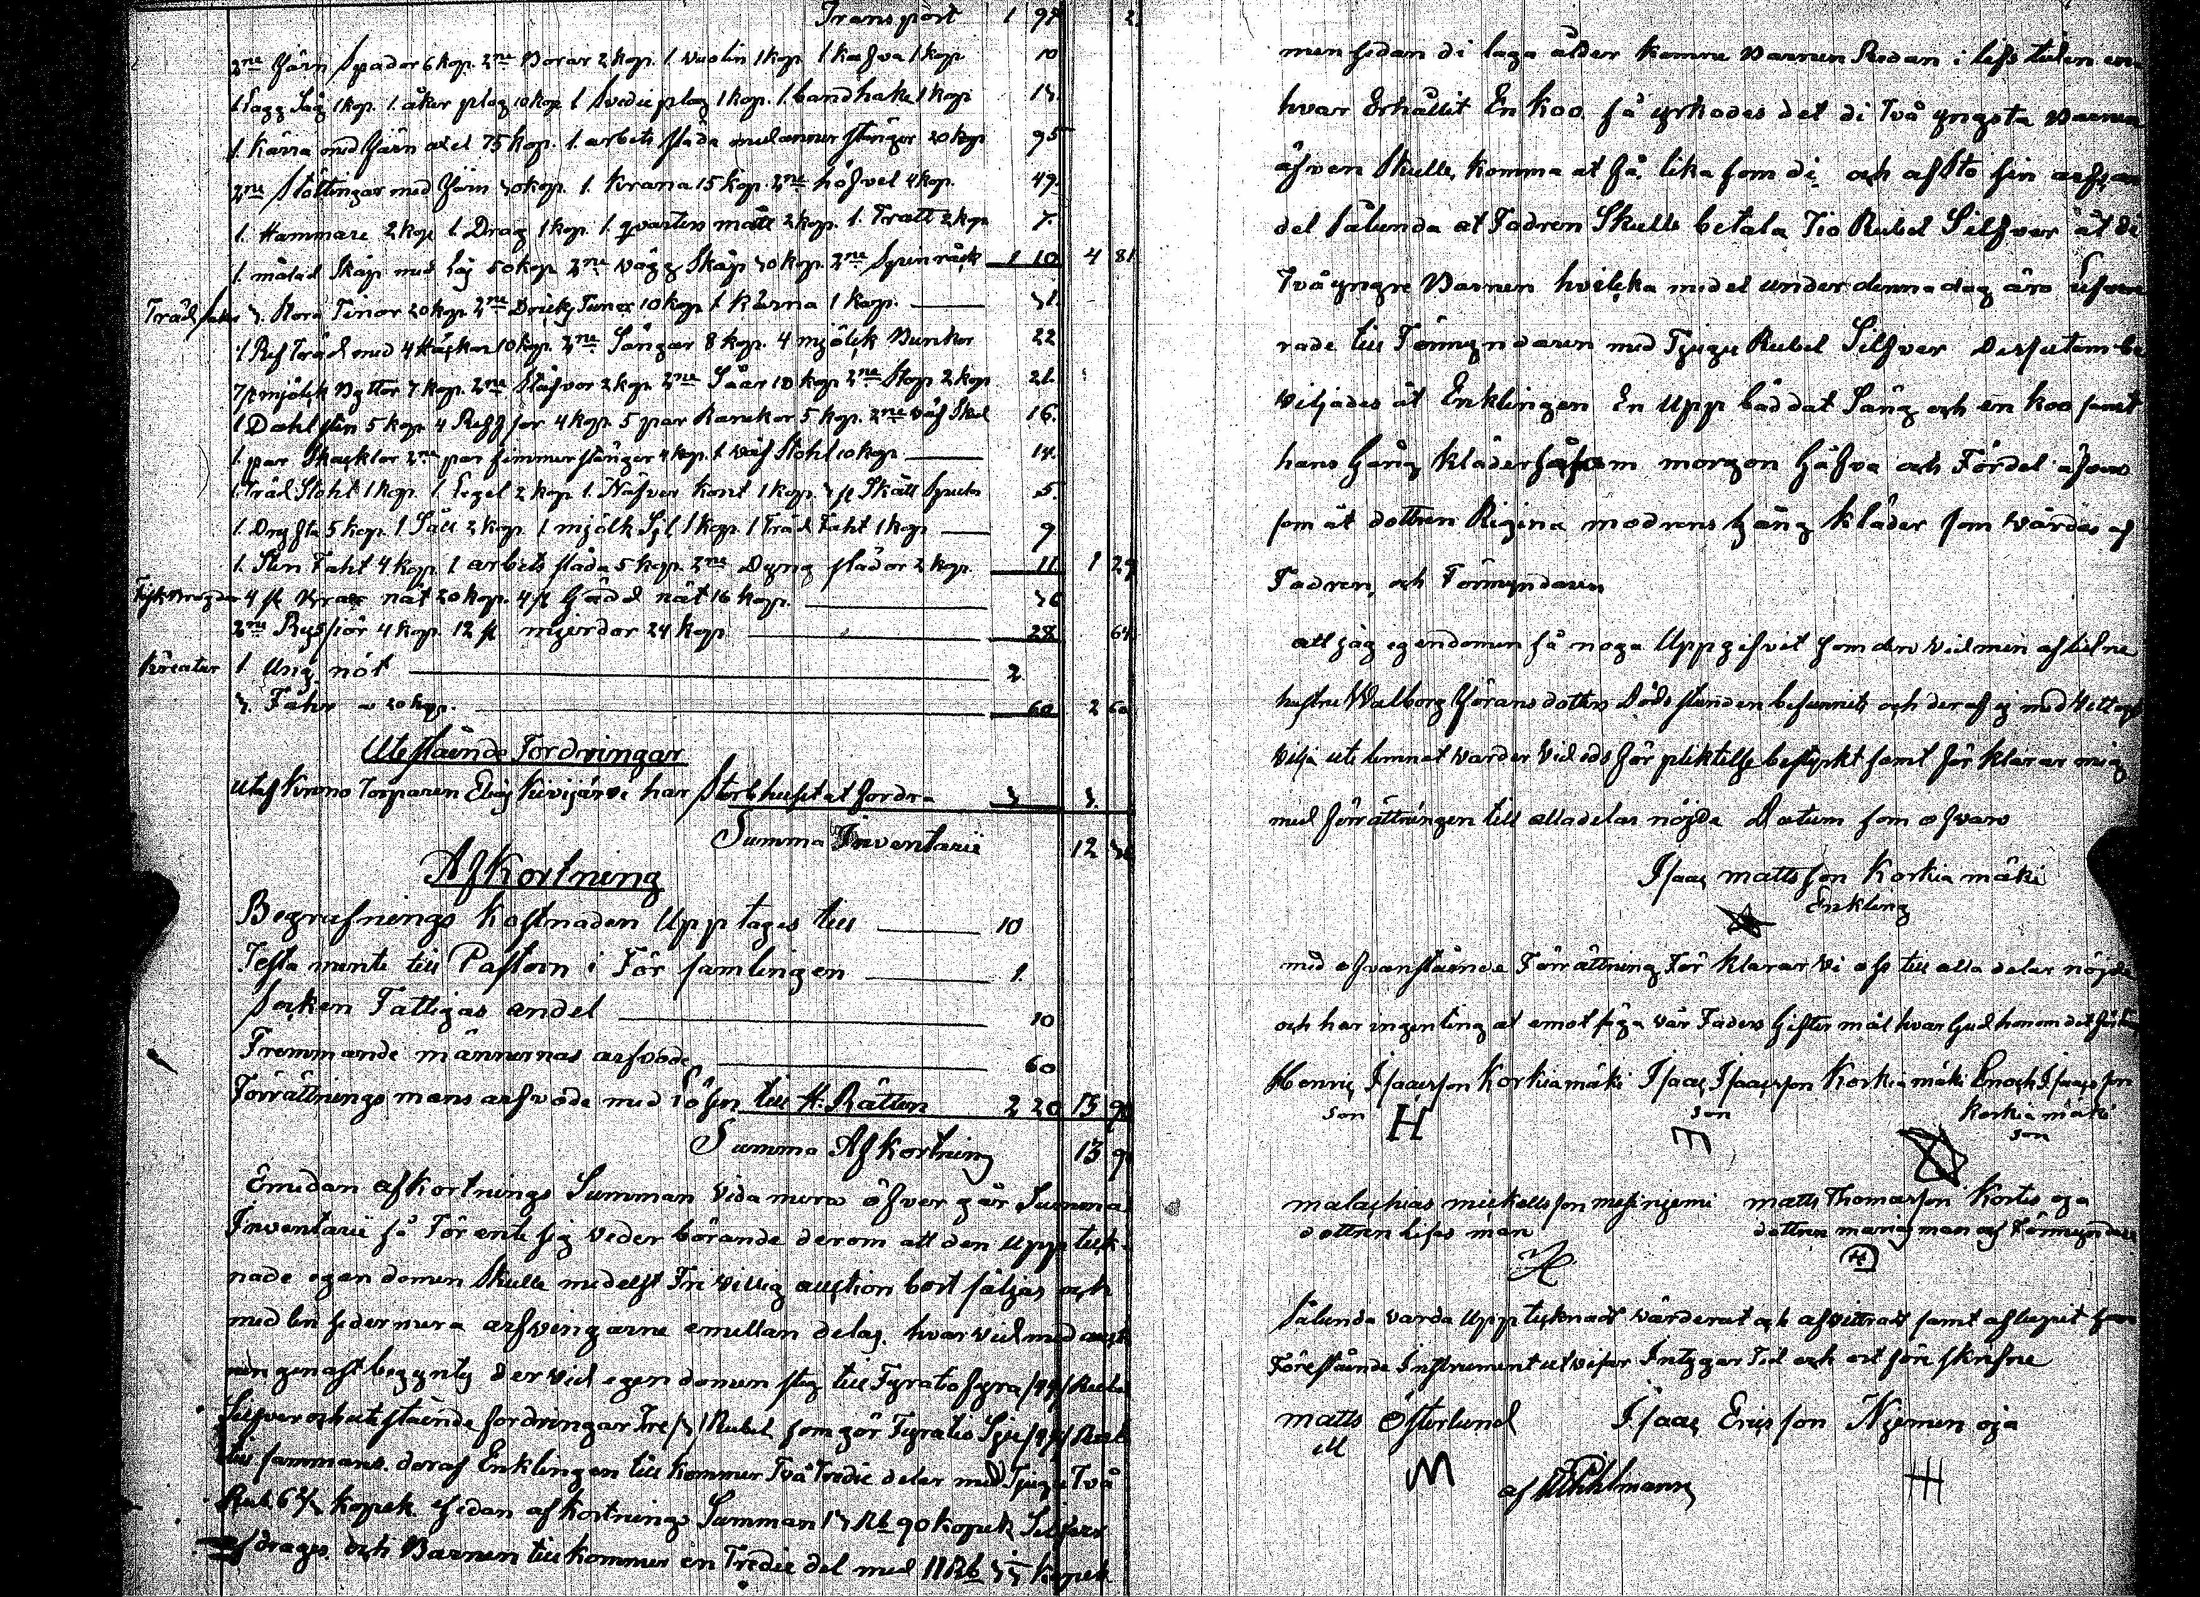 Transport 1 97 2
2ne Järn Spador 6 kop. 2ne Borar 2 kop. 1 1 kop 1 1 kop 10
1 Såg 1 kop. 1. åker plog 10 kop 1 Svedie plog 1 kop. 1. bandhake 1 kop 13.
1. Kärra med Järn axel 75 kop. 1. arbets släda med stänger 20 kop 95
2ne Stöttingar med Järn 30 kop. 1. Krana 15 kop. 2ne höfvel 4 kop. 49.
1. Hammare 2 kop 1 Drag 1 kop. 1. qvarters mått 2 kop. 1. Tratt 2 kop 7.
1. målad Skåp med 50 kop. 2ne vägg Skåp 30 kop. 2ne Spin råck 1 10 4 81
Träd saker 3. Stora Tinor 20 kop. 2ne Dricks Tunor 10 kop 1 Kärna 1 kop. 31.
1 Träd med 4 10 kop. 2ne Sängar 8 kop. 4 mjölck Bunkor 22
7 st mjölck Byttor 7 kop. 2ne Stäfvor 2 kop. 2ne Såar 10 kop 2ne Stop 2 kop 21.
1 5 kop. 4 4 kop. 5 par 5 kop. 2ne väf Sked 16.
1. par Skacklor 2ne par stänger 4 kop. 1 Väf Stohl 10 kop 14.
1. Träd Stohl 1 kop. 1 2 kop 1. Näfver Kont 1 kop. 3 st 5.
1. Dryfta 5 kop. 1 Såll 2 kop. 1 mjölk Sil 1 kop. 1 Träd Faht 1 kop 9
1. Sten Faht 4 kop. 1 arbets släda 5 kop. 2ne Dyng slädor 2 kop. 11 1 29
Fisk 4 st nät 20 kop. 4 st Gädd nät 16 kop. 36
2ne Ryssjor 4 kop. 12 st mjerdor 24 kop 28 64
Kreatur 1 Ung nöt 2.
3. Fåhr a 20 kop. 60 2 60
Utestående Fordringar
Utaf Krono Torparen Kivijärvi har Sterbhuset at fordra 3 3.
Summa Inventarii 12
AfKortning
Begrafnings Kostnaden Upptages till 10
Testamente till Pastorn i Församlingen 1.
Socken Fattigas andel 10
Fremmande männernas arfvode 60
Förrättnings mans arfvode med lösen till H. Rätten 2 20 13 90
Summa AfKortning 13 90
Emedan afKortnings Summan vida mera öfvergår Summa
Inventarii så Förente sig vederbörande derom att den Uppteck-
nade egendomen Skulle medelst Frivillig auction bortsäljas och
medlen sedermera arfvingarne emellan delas. hvarvid med auct
genast begynts dervid egendomen steg till Fyratiofyra /44/ Rubel
Silfver och utestående fordringar Tre /3/ Rubel som gör Fyratio Sju /47/ Rub
tillsammans. deraf Enklingen tillkommer Två Tredie delar med Tjugu Två
Rub. 6 2/3 kopek sedan afkortnings Summan 13 Rb 90 kopek Silfver
afdrages. och Barnen tillkommer en Tredie del med 11 Rb 33 kopek
men sedan di laga ålder komne Barnen Redan i lifs tiden en
hvar Erhållit En Koo. så yrkades det di Två yngsta Barnen
äfven Skulle Komma at få lika som di och afsto sin arfs an
del Sålunda at Fadren Skulle betala Tio Rubel Silfver åt di
Två yngre Barnen hvilcka medel under denna dag äro
rade till Förmyndaren med Tjugu Rubel Silfver Desutom be
viljades åt Enklingen En Uppbäddat Säng och en koo samt
hans Gång Kläder såsom morgon Gåfva och Fördel äfven
som åt dottren Regina modrens Gång kläder som vårdas af
Fadren, och Förmyndaren
att jag egendomen så noga Uppgifvit som den vid min aflidne
hustru Walborg Göransdotters Dödsstunden befunnits och deraf ej med Vett och
Vilja utelemnat varder vid eds förpliktelse bestyrkt samt förklarar mig
med förrättningen till alla delar nöjde Datum som ofvan
Isaac mattsson Korkiamäki
Enkling
med ofvanstående Förrättning Förklarar Vi oss till alla delar nöjde
och har ingenting at emot säga vår Faders Giftermål hvar Gud honom det
Henric Isaacsson Korkiamäki Isaac Isaacsson Korkiamäki Enoch Isaacsson
son H son Korkiamäki
son
malachias mickellsson matts Thomasson
dottren Lisas man dottren marias man och Förmyndare
Sålunda varda Upptecknadt värderat och afvittrat samt aflupit som
Förestående Instrument utvisar Intygar Tid och ort förskrifne
matts Österlund Isaac Ericsson
M
af